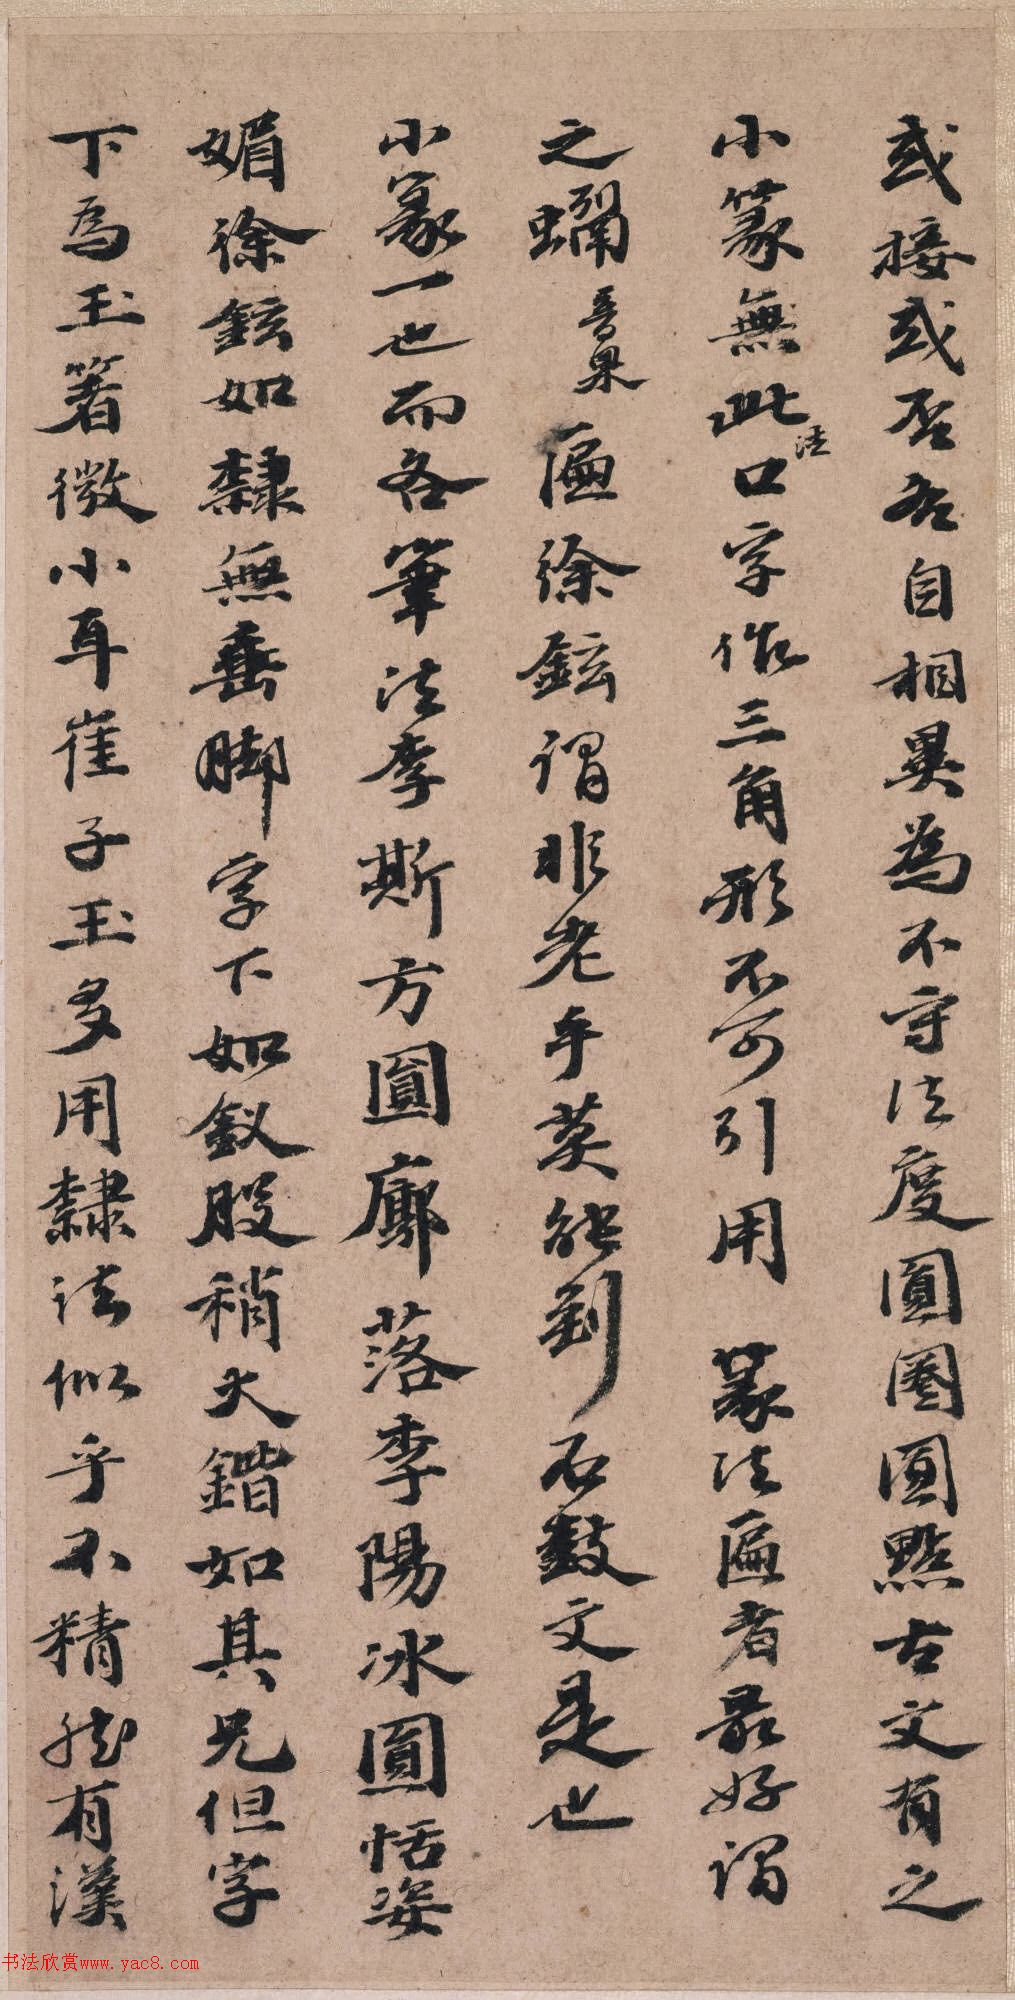 或接或否各自相異為不守法度圓圈圓點古文有之
小篆無此法口字作三角形不可引用 篆法匾者最好謂
之䗽音果匾徐鉉謂非老手莫能到石鼓文是也
小篆一也而各筆法李斯方圓廓落李陽冰圓恬姿
媚徐鉉如隸無垂脚字下如釵股稍大鍇如其兄但字
下為玉箸微小耳崔子玉多用隸法似乎不精然有漢
书法欣赏www.yac8.com